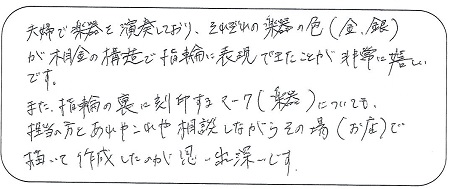 夫婦で楽器を演奏しており、それぞれの楽器の色(金、銀)
が木目金の構造で指輪に表現できたことが非常に嬉しい
です。
また、指輪の裏に刻印するマーク(楽器)についても、
担当の方とあれやこれや相談しながらその場(お店)で
描いて作成したのが思い出深いです。